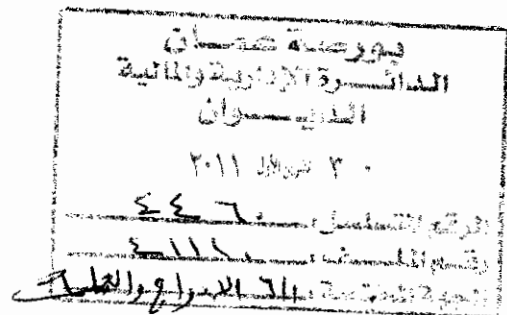 بورصة عمان
الدائرة الإدارية والمالية
الديوان
٣٠ تموز ٢٠١١
الرقم المتسلسل: ٤٤٦٠
رقم الملف:
الجهة المختصة: الادراج والعمليات